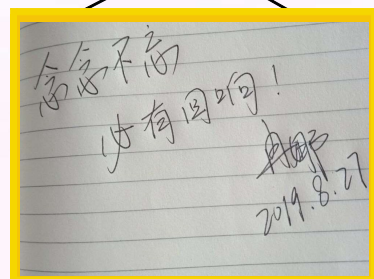 念念不忘
必有回响!
2019.8.27